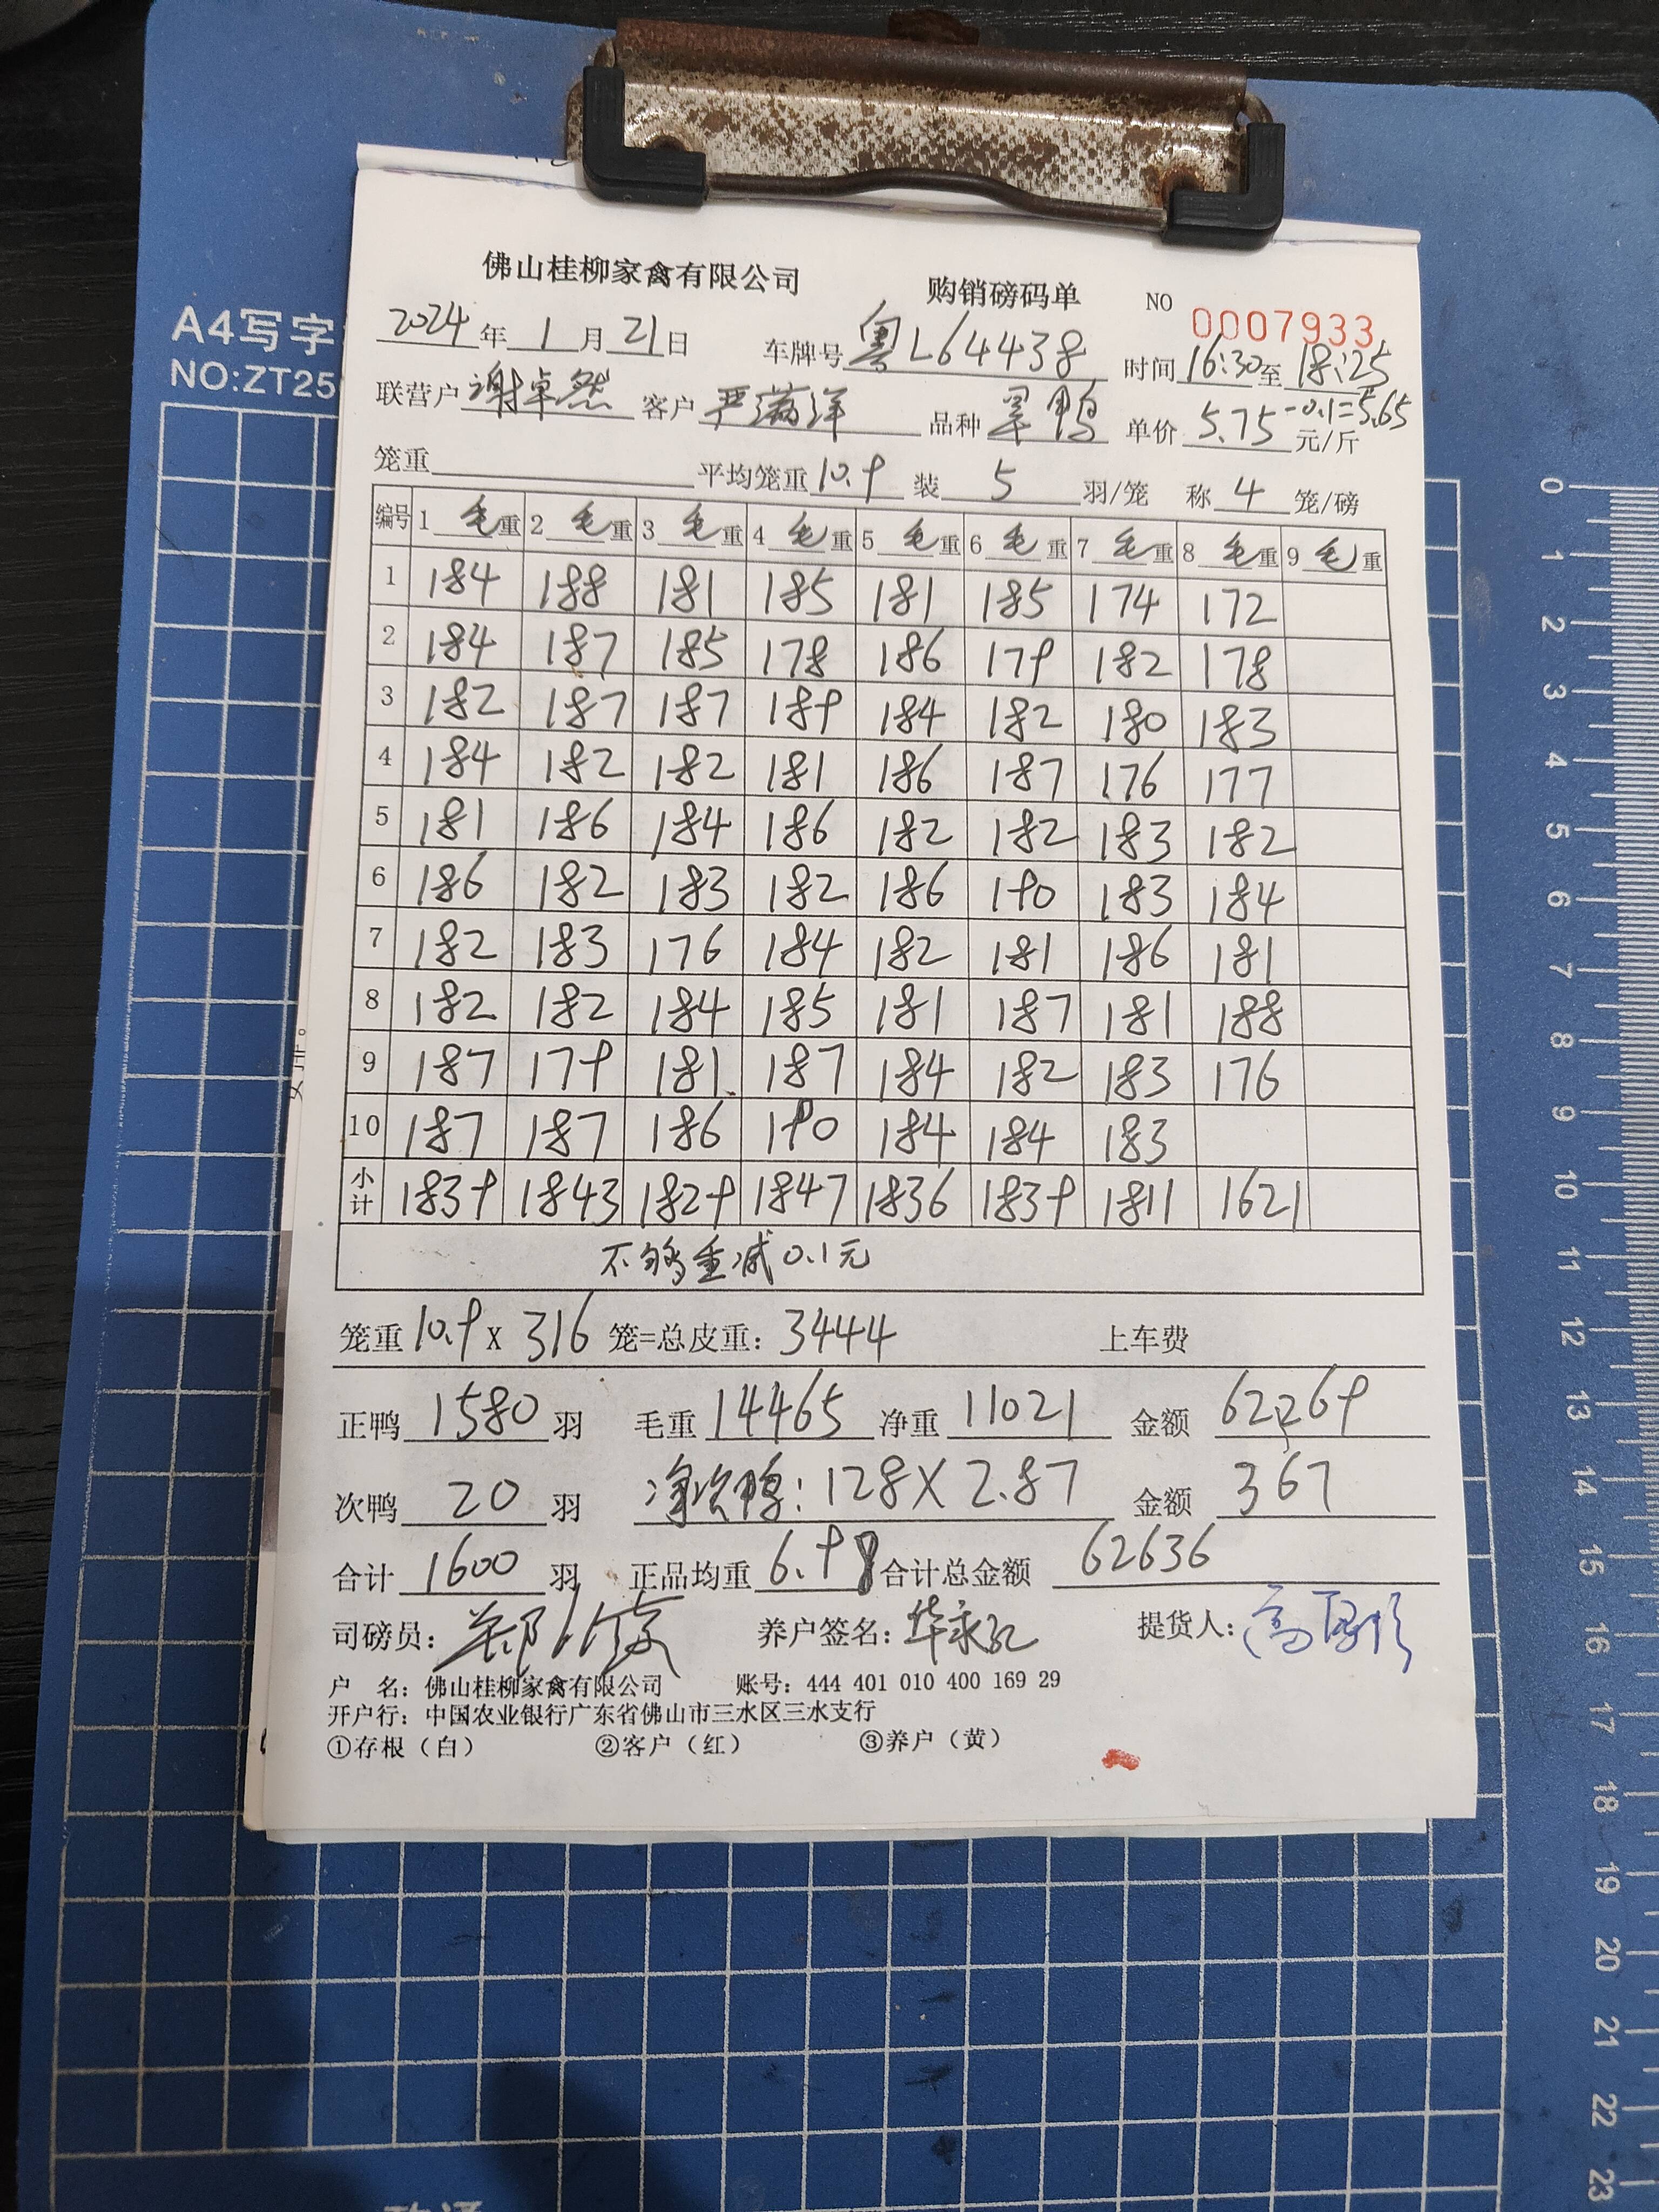 A4写字
NO:ZT25
佛山桂柳家禽有限公司 购销磅码单 NO 0007933
2024年1月21日 车牌号 粤L64438 时间 16:30至18:25
联营户 谢卓然 客户 严满洋 品种 单价 5.75-0.1=5.65 元/斤
笼重 平均笼重 10.9 装 5 羽/笼 称 4 笼/磅
编号 1 毛重 2 毛重 3 毛重 4 毛重 5 毛重 6 毛重 7 毛重 8 毛重 9 毛重
1 184 188 181 185 181 185 174 172
2 184 187 185 178 186 179 182 178
3 182 187 187 189 184 182 180 183
4 184 182 182 181 186 187 176 177
5 181 186 184 186 182 182 183 182
6 186 182 183 182 186 190 183 184
7 182 183 176 184 182 181 186 181
8 182 182 184 185 181 187 181 188
9 187 179 181 187 184 182 183 176
10 187 187 186 190 184 184 183
小计 1839 1843 1829 1847 1836 1839 1811 1621
不够重减0.1元
笼重 10.9 X 316 笼=总皮重: 3444 上车费
正鸭 1580 羽 毛重 14465 净重 11021 金额 62269
次鸭 20 羽 净次鸭: 128X2.87 金额 367
合计 1600 羽 正品均重 6.98 合计总金额 62636
司磅员: 养户签名: 提货人:
户 名: 佛山桂柳家禽有限公司 账号: 444 401 010 400 169 29
开户行: 中国农业银行广东省佛山市三水区三水支行
①存根（白） ②客户（红） ③养户（黄）
0
1
2
3
4
5
6
7
8
9
10
11
12
13
14
15
16
17
18
19
20
21
22
23